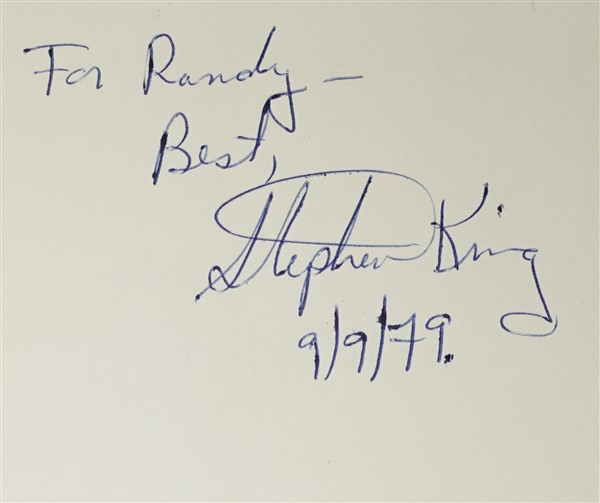 For Randy –
Best,
Stephen King
9/9/79.